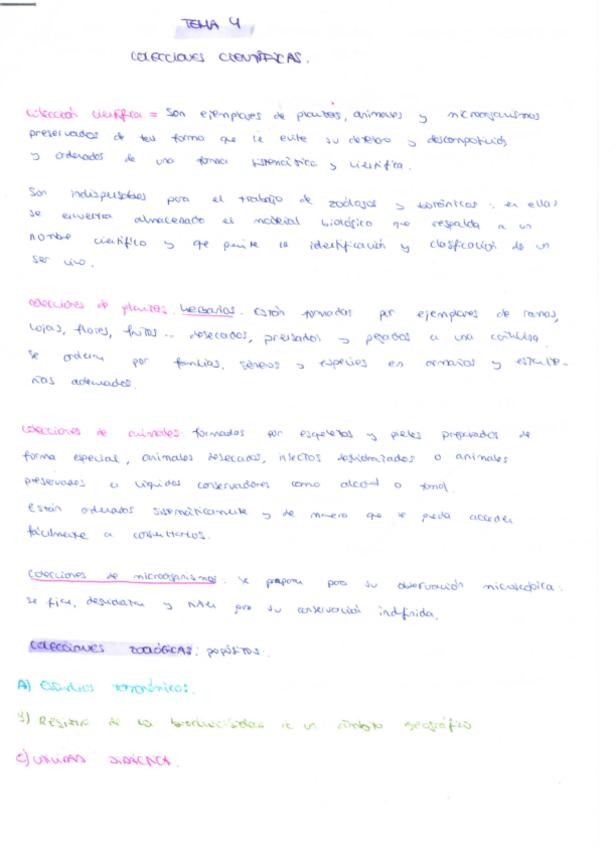 TEMA 4
COLECCIONES CIENTÍFICAS.
Colección científica = Son ejemplares de plantas, animales y microorganismos
preservados de tal forma que se evite su deterioro y descomposición
y ordenados de una forma sistemática y científica.
Son indispensables para el trabajo de zoólogos y botánicos, en ellas
se encuentra almacenado el material biológico que respalda a un
nombre científico y que permite la identificación y clasificación de un
ser vivo.
Colecciones de plantas. Herbarios. Están formadas por ejemplares de ramas,
hojas, flores, frutos... desecados, prensados y pegados a una cartulina.
Se ordenan por familias, géneros y especies en armarios y estante-
rías adecuados.
Colecciones de animales. formadas por esqueletos y pieles preparados de
forma especial, animales desecados, insectos deshidratados o animales
preservados en líquidos conservadores como alcohol o formol.
Están ordenados sistemáticamente y de manera que se pueda acceder
fácilmente a consultarlos.
Colecciones de microorganismos. Se preparan para su observación microscópica.
Se fijan, deshidratan y para su conservación indefinida.
COLECCIONES ZOOLÓGICAS: propósitos.
A) Estudios taxonómicos.
B) Registro de la biodiversidad de un ámbito geográfico
C) UTILIDAD DIDÁCTICA.